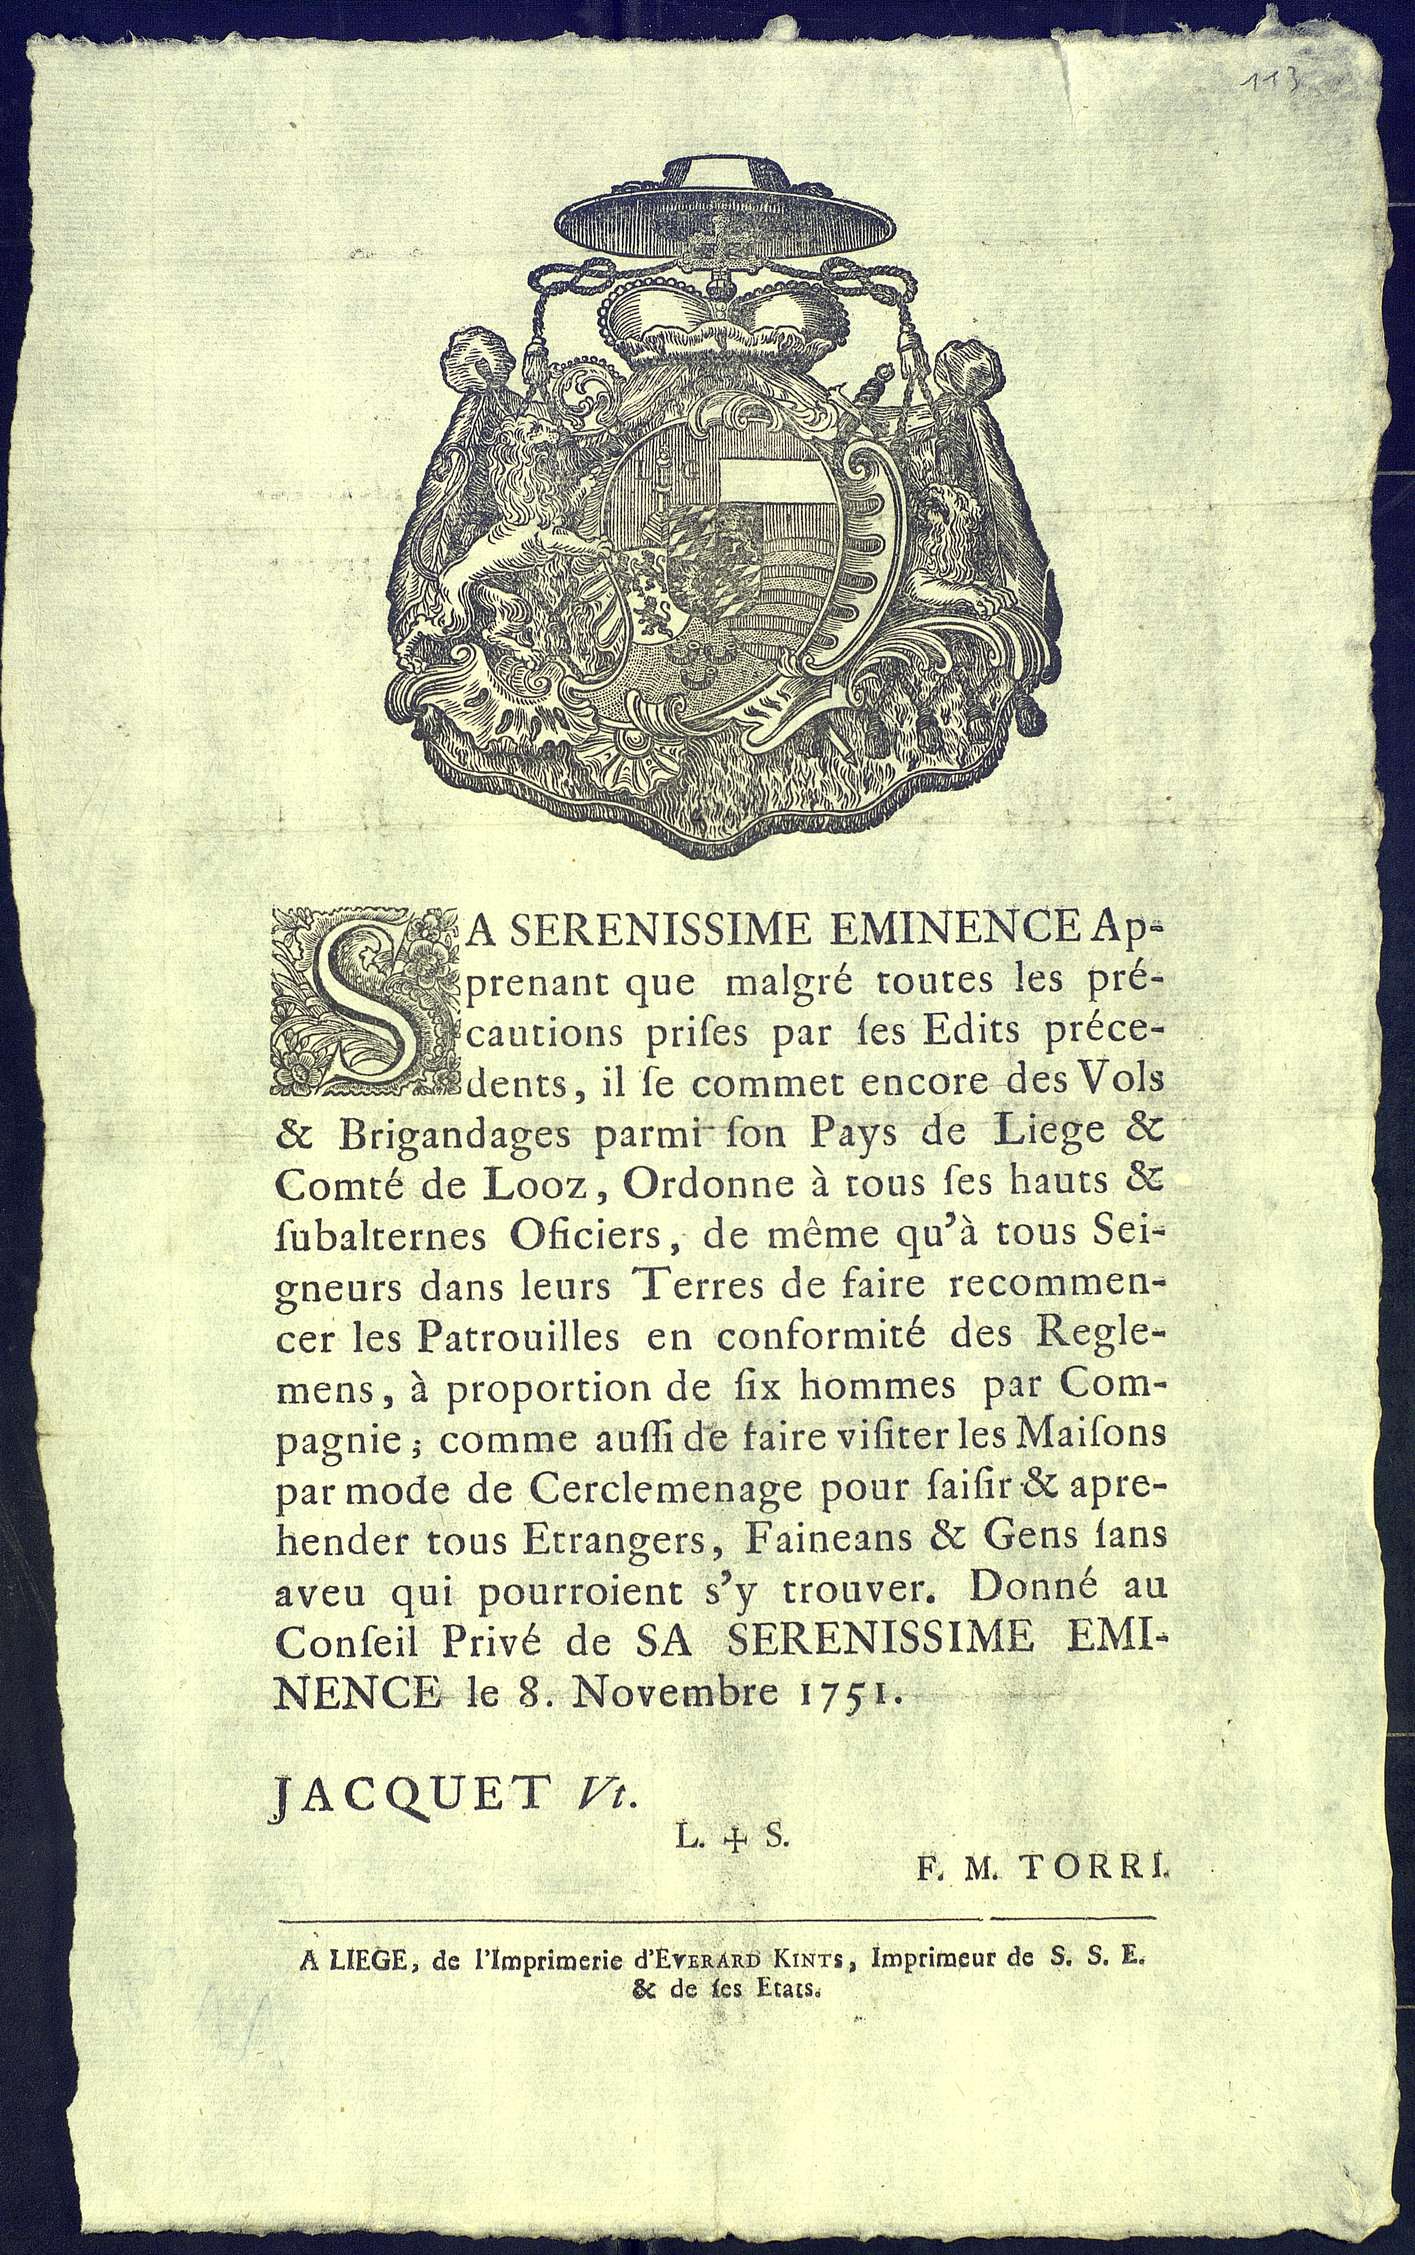 113
L G
SA SERENISSIME EMINENCE Ap-
prenant que malgré toutes les pré-
cautions priſes par ſes Edits préce-
dents, il ſe commet encore des Vols
& Brigandages parmi ſon Pays de Liege &
Comté de Looz, Ordonne à tous ſes hauts &
ſubalternes Oficiers, de même qu'à tous Sei-
gneurs dans leurs Terres de faire recommen-
cer les Patrouilles en conformité des Regle-
mens, à proportion de ſix hommes par Com-
pagnie; comme auſſi de faire viſiter les Maiſons
par mode de Cerclemenage pour ſaiſir & apre-
hender tous Etrangers, Faineans & Gens ſans
aveu qui pourroient s'y trouver. Donné au
Conſeil Privé de SA SERENISSIME EMI-
NENCE le 8. Novembre 1751.
JACQUET Vt.
L. ✢ S.
F. M. TORRI.
A LIEGE, de l'Imprimerie d'EVERARD KINTS, Imprimeur de S. S. E.
& de ſes Etats.